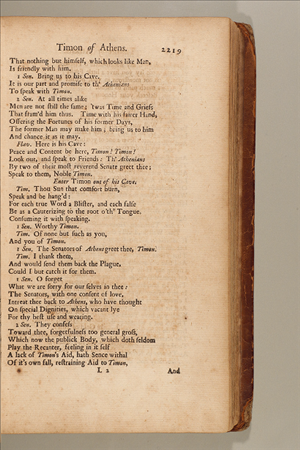 Timon of Athens. 2219
That nothing but himself, which looks like Man,
Is friendly with him.
1 Sen. Bring us to his Cave,
It is our part and promise to th' Athenians
To speak with Timon.
2 Sen. At all times alike
Men are not still the same; 'twas Time and Griefs
That fram'd him thus. Time with his fairer Hand,
Offering the Fortunes of his former Days,
The former Man may make him; bring us to him
And chance it as it may.
Flav. Here is his Cave:
Peace and Content be here, Timon! Timon!
Look out, and speak to Friends: Th' Athenians
By two of their most reverend Senate greet thee;
Speak to them, Noble Timon.
Enter Timon out of his Cave.
Tim. Thou Sun that comfort burn,
Speak and be hang'd:
For each true Word a Blister, and each false
Be as a Cauterizing to the root o'th' Tongue.
Consuming it with speaking.
1 Sen. Worthy Timon.
Tim. Of none but such as you,
And you of Timon.
1 Sen. The Senators of Athens greet thee, Timon.
Tim. I thank them,
And would send them back the Plague,
Could I but catch it for them.
1 Sen. O forget
What we are sorry for our selves in thee:
The Senators, with one consent of love,
Intreat thee back to Athens, who have thought
On special Dignities, which vacant lye
For thy best use and wearing.
2 Sen. They confess
Toward thee, forgetfulness too general gross,
Which now the publick Body, which doth seldom
Play the Recanter, feeling in it self
A lack of Timon's Aid, hath Sence withal
Of it's own fall, restraining Aid to Timon,
L 2 And